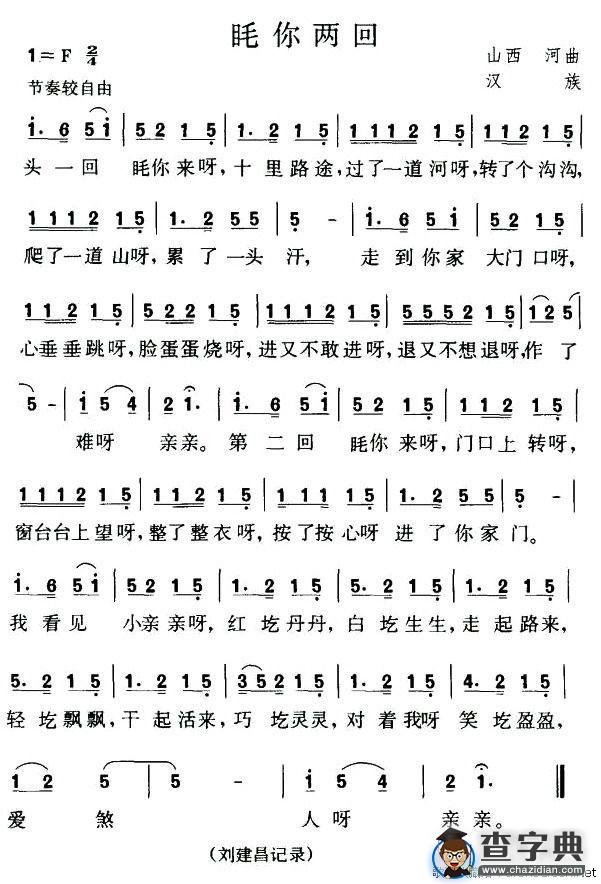 眊你两回
1=F 2/4
山西 河曲
节奏较自由
汉 族
1. 6 5 1 | 5 2 1 5 | 1. 2 1 5 | 1 1 1 2 1 5 | 5 2 2 1 5 |
头一回 眊你来呀,十里路途,过了一道河呀,转了个沟沟,
1 1 1 2 1 5 | 1. 2 5 5 | 5 - | 1. 6 5 1 | 5 2 1 5 |
爬了一道山呀,累了一头汗, 走到你家 大门口呀,
1 1 2 1 5 | 5 2 2 1 5 | 1 1 1 2 1 5 | 5 5 5 2 1 5 | 1 2 5 |
心垂垂跳呀,脸蛋蛋烧呀,进又不敢进呀,退又不想退呀,作了
5 - | 1 5 4 | 2 1. | 1. 6 5 1 | 5 2 1 5 | 1 1 2 1 5 |
难呀 亲亲。第二回 眊你来呀,门口上转呀,
1 1 1 2 1 5 | 1 1 2 1 5 | 1 1 2 1 5 | 1. 2 5 5 | 5 - |
窗台台上望呀,整了整衣呀,按了按心呀 进了你家门。
1. 6 5 1 | 5 2 1 5 | 1. 2 1 5 | 5. 2 1 5 | 1. 2 1 5 |
我看见 小亲亲呀,红圪丹丹,白圪生生,走起路来,
5. 2 1 5 | 1. 2 1 5 | 3 5 2 1 5 | 1. 2 1 5 | 4. 2 1 5 |
轻圪飘飘,干起活来,巧圪灵灵,对着我呀 笑圪盈盈,
1 2 | 5 - | 1 5 4 | 2 1. ‖
爱煞 人呀 亲亲。
(刘建昌记录)
查字典
www.chazidian.com